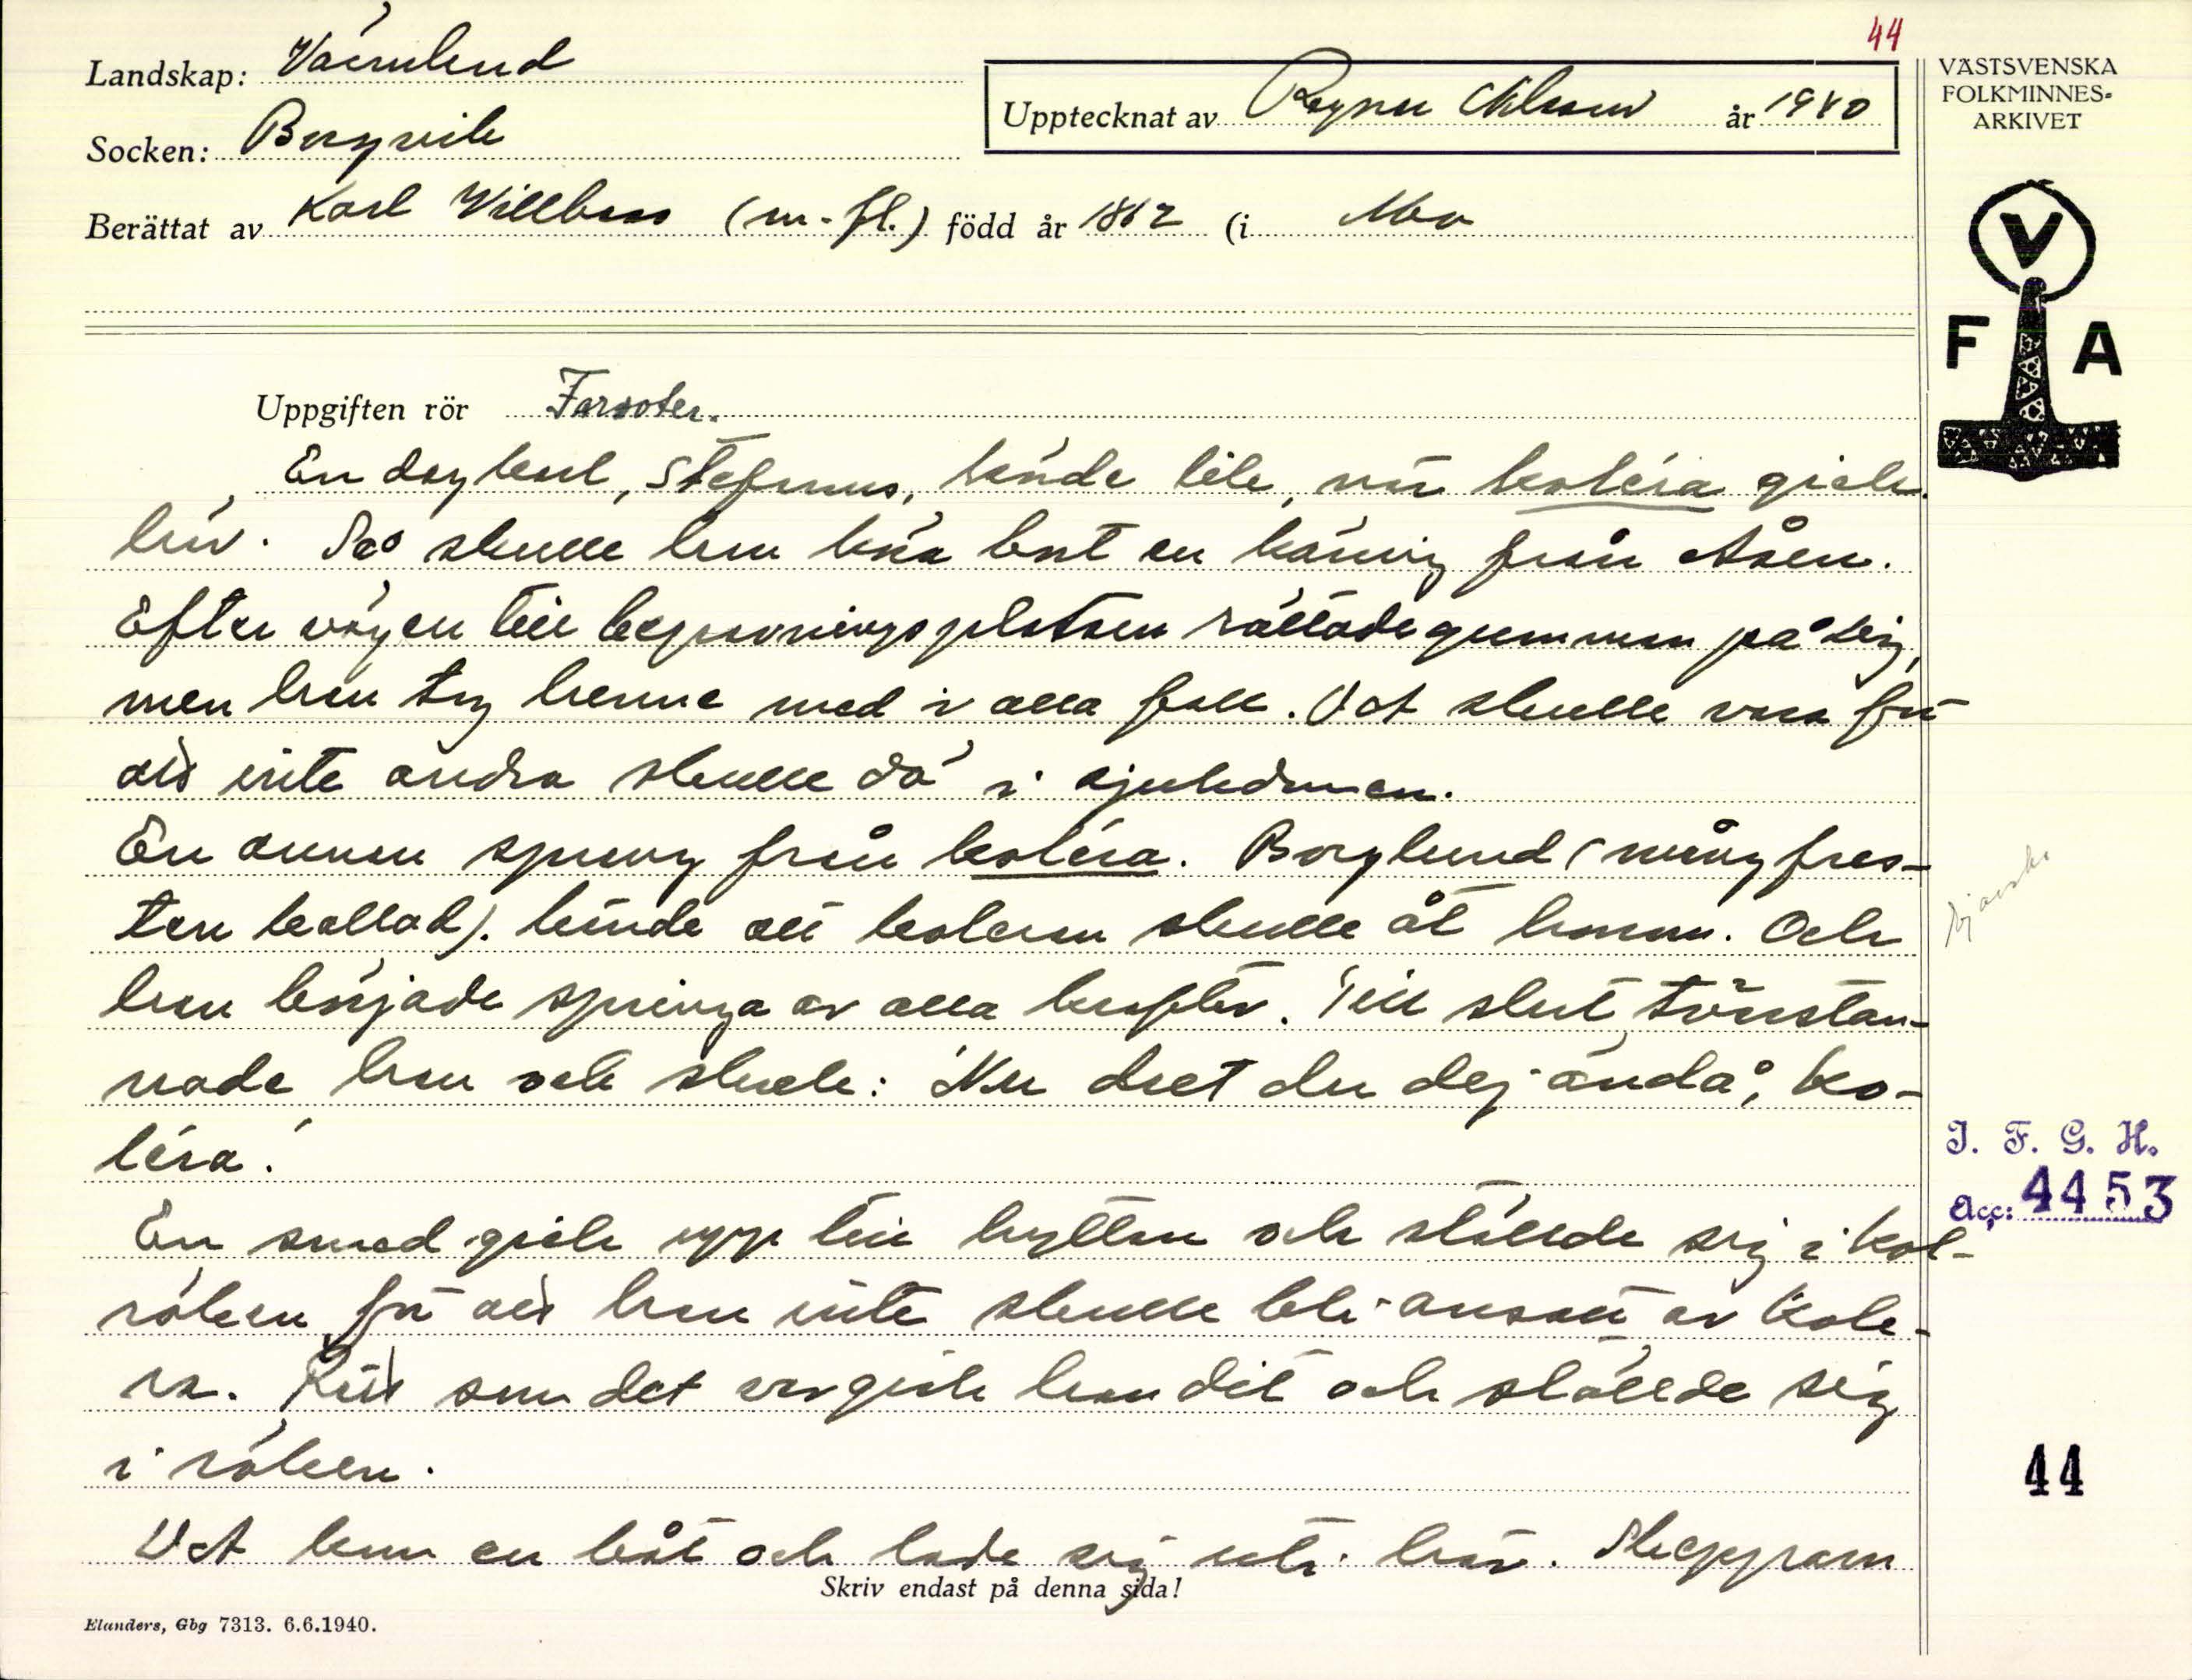 44
Landskap: Värmland
Upptecknat av Ragnar Nilsson år 1940
VÄSTSVENSKA
FOLKMINNES-
ARKIVET
Socken: Borgvik
Berättat av Karl Villbass (m. fl.) född år 1862 (i Mo
V
F A
Uppgiften rör Farsoter.
En dag karl, Stefanus, hände lik, när koléra gick
här. Så skulle han köra bort en käring från Åsen.
Efter vägen till begravningsplatsen rättade gumman på sig,
men han tog henne med i alla fall. Det skulle vara för
att inte andra skulle dö i sjukdomen.
En annan sprang från koléra. Borglund (
ten kallad). kände att koleran skulle åt honom. Och
han började springa av alla krafter. Till slut tvärstan-
nade han och skrek: Nu dret du dej ändå, ko-
léra!
En smed gick upp till hyttan och ställde sig i kol-
röken för att han inte skulle bli ansatt av kole-
ra. Rätt som det var gick han dit och ställde sig
i röken.
I. F. G. H.
Acc: 4453
44
Det kom en båt och lade sig uti här. Skepparn
Skriv endast på denna sida!
Elanders, Gbg 7313. 6.6.1940.